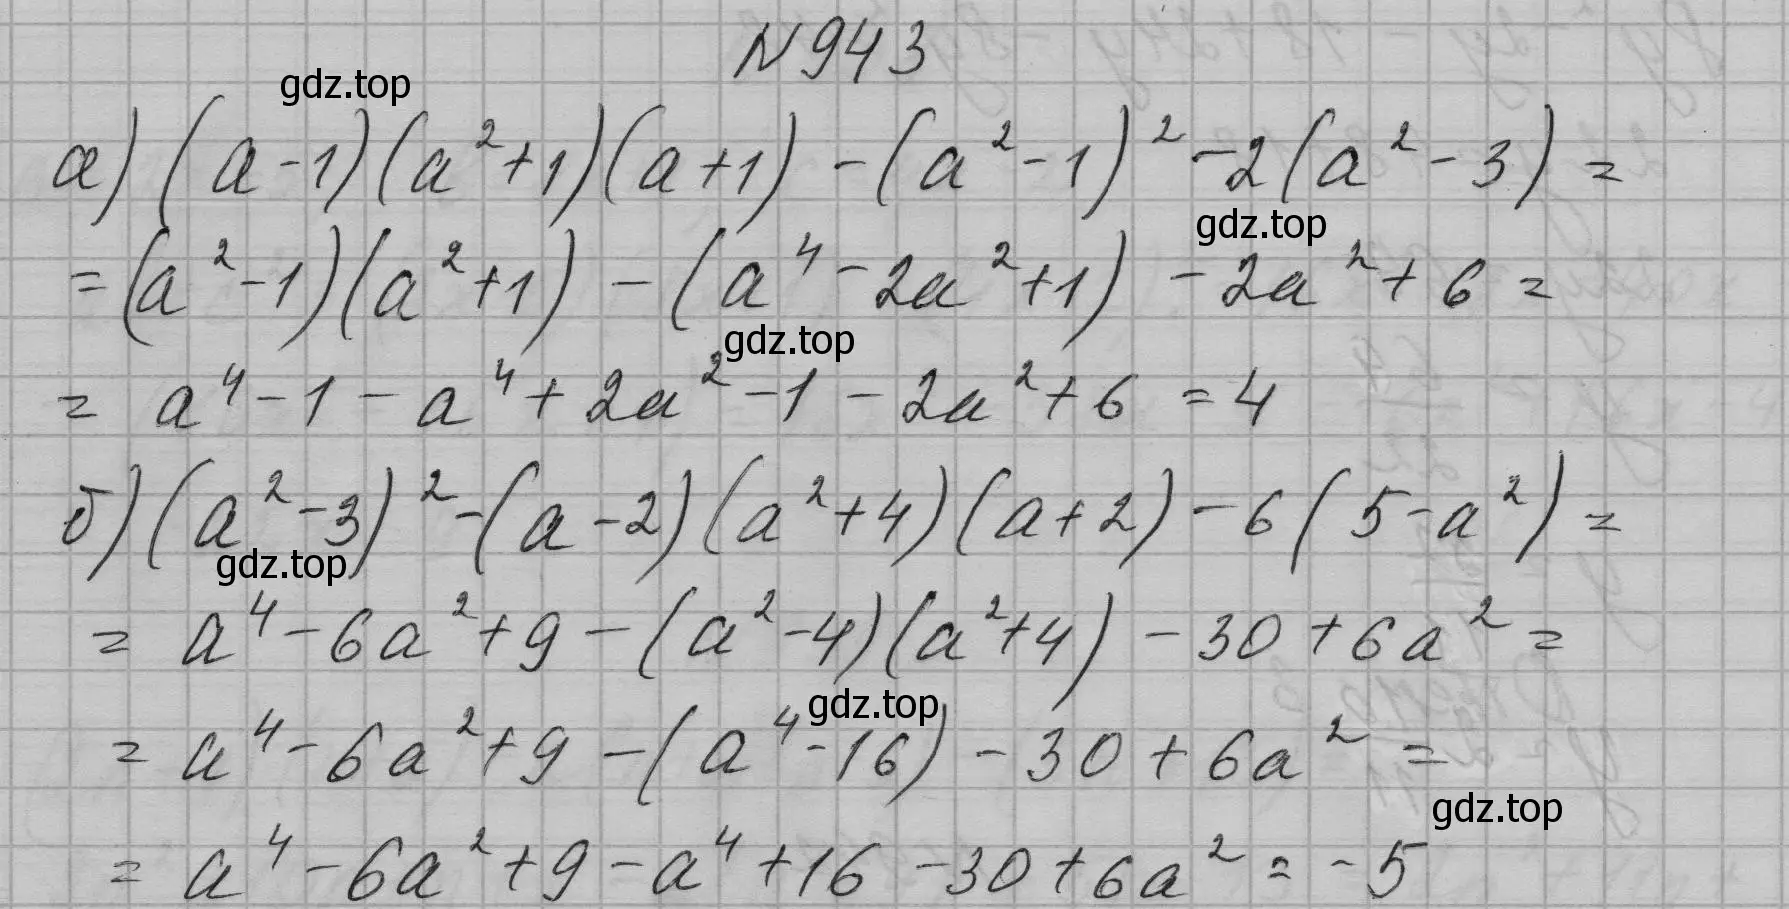 N 943
gdz.top
а) (a-1)(a²+1)(a+1) - (a²-1)² - 2(a²-3) =
gdz.top
= (a²-1)(a²+1) - (a⁴-2a²+1) - 2a² + 6 =
gdz.top
= a⁴ - 1 - a⁴ + 2a² - 1 - 2a² + 6 = 4
б) (a²-3)² - (a-2)(a²+4)(a+2) - 6(5-a²) =
gdz.top
= a⁴ - 6a² + 9 - (a²-4)(a²+4) - 30 + 6a² =
gdz.top
= a⁴ - 6a² + 9 - (a⁴-16) - 30 + 6a² =
gdz.top
= a⁴ - 6a² + 9 - a⁴ + 16 - 30 + 6a² = -5